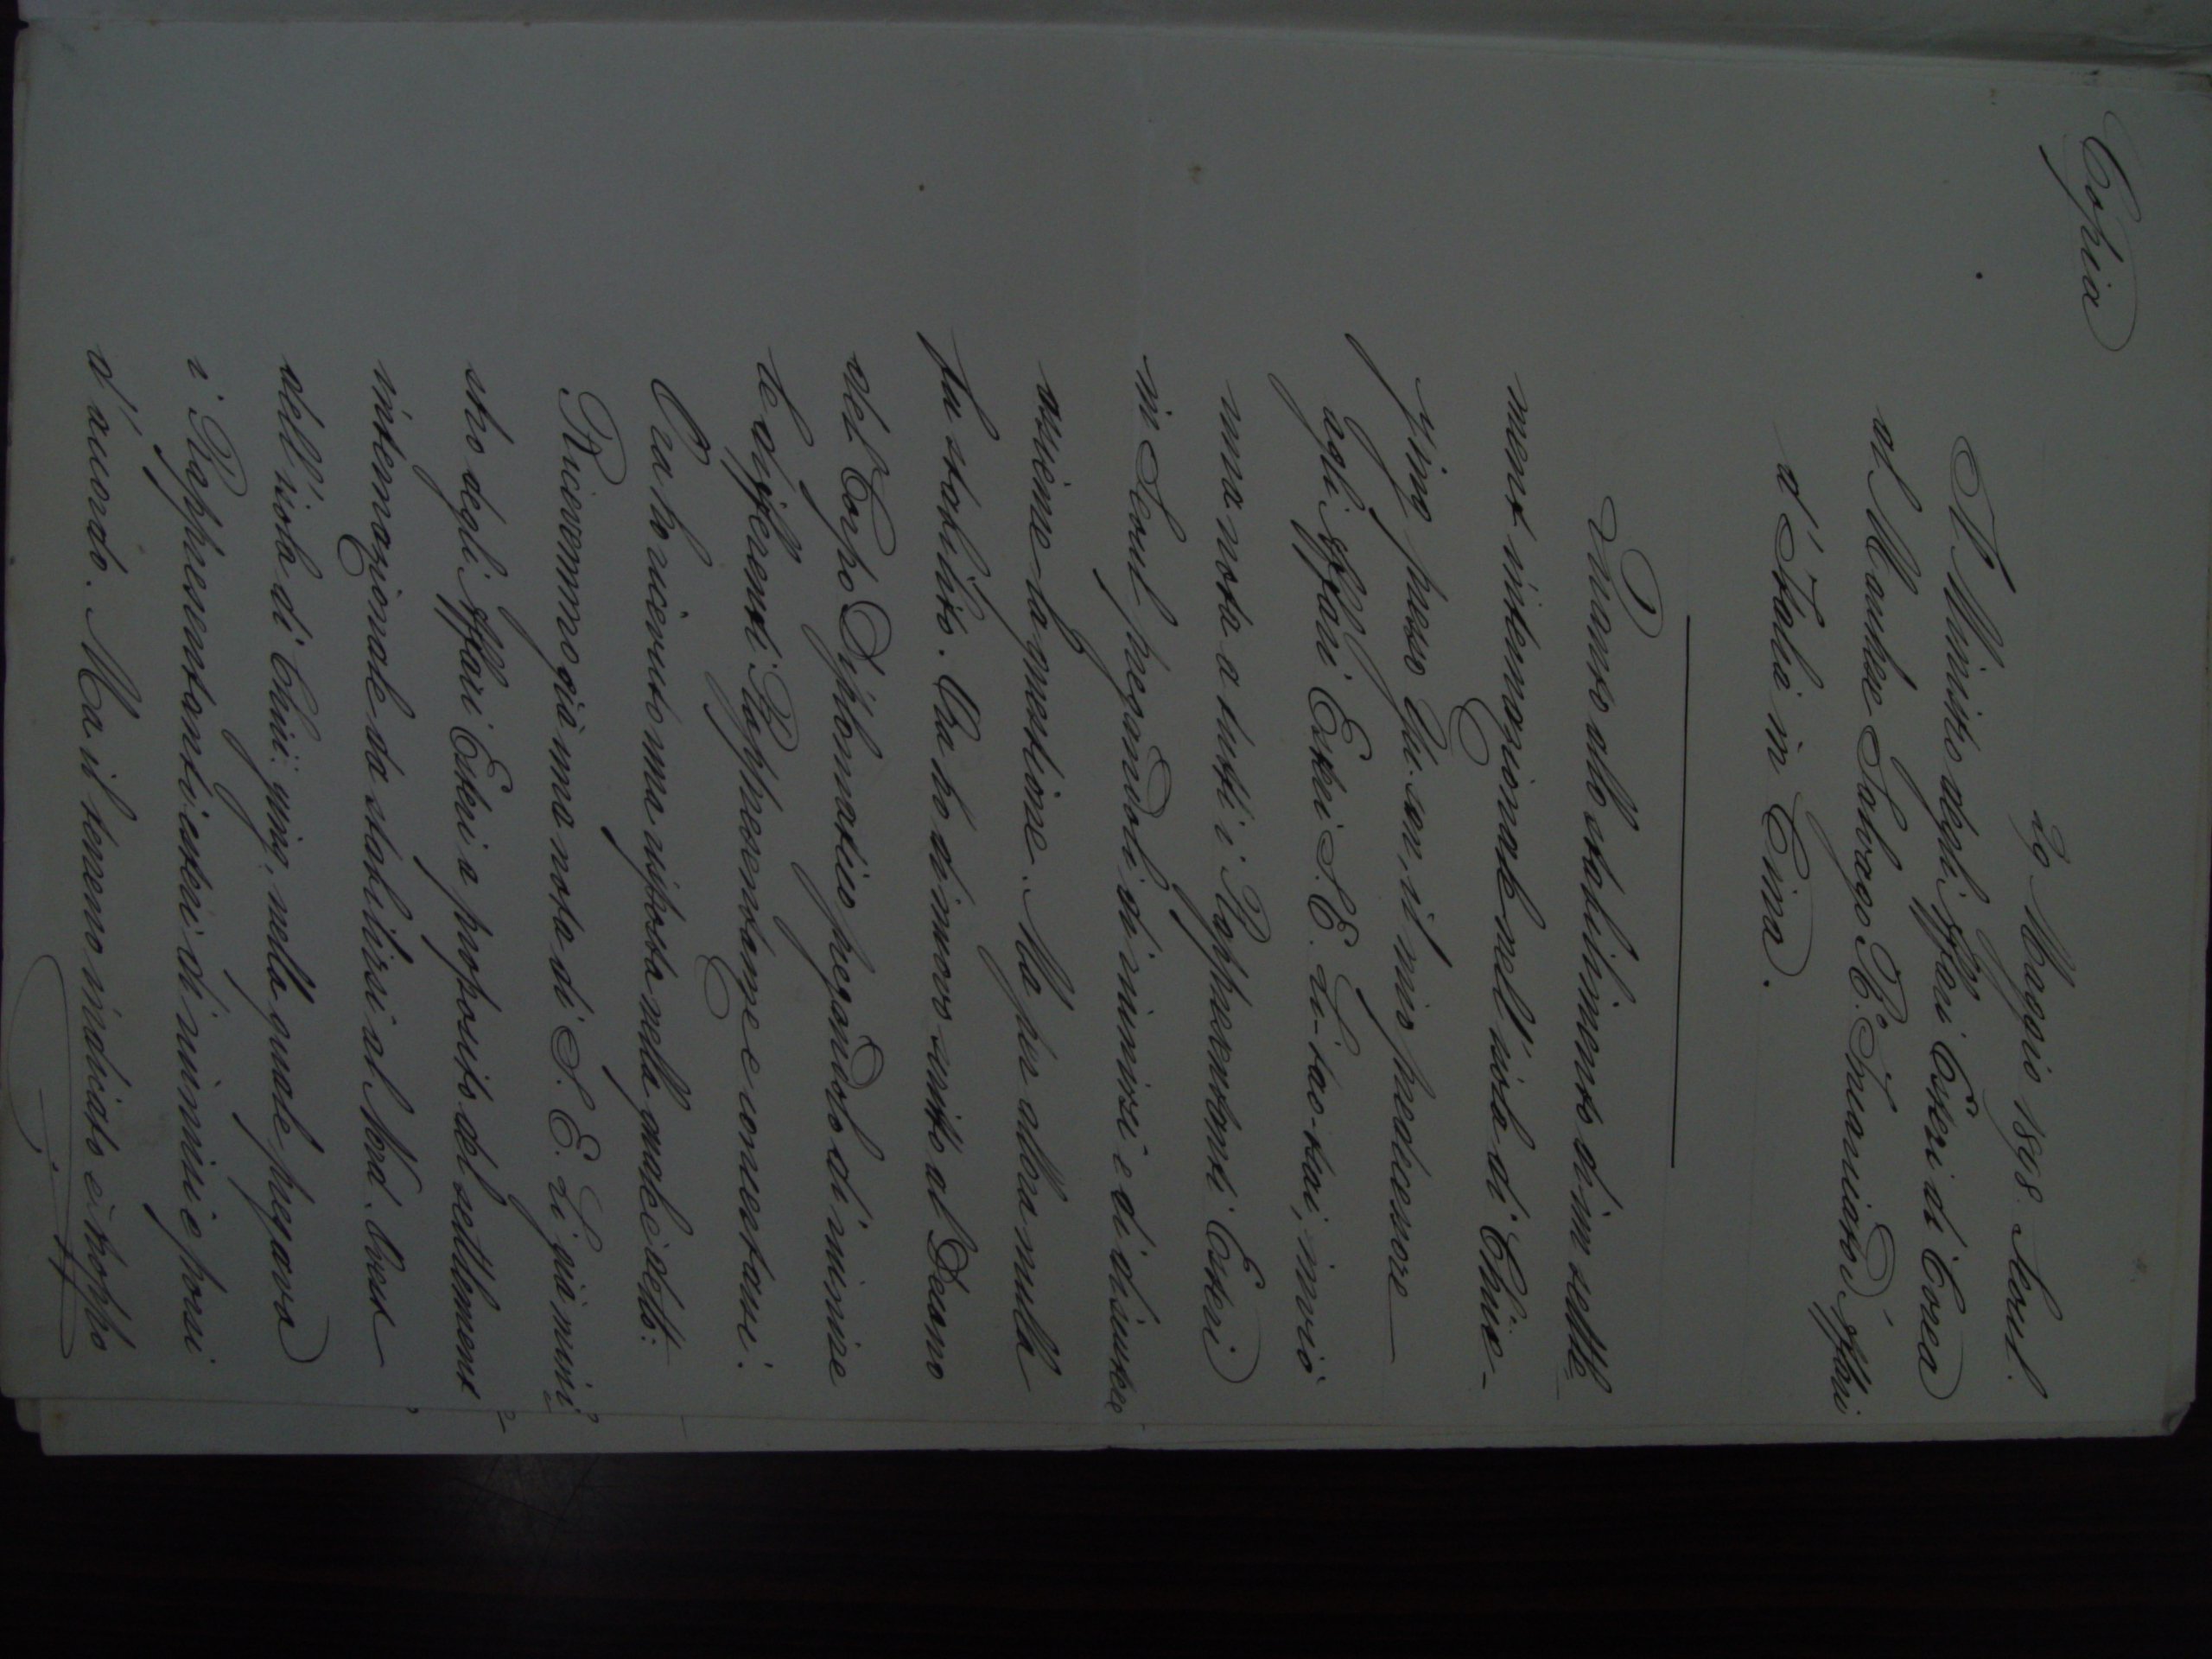 Copia
20 Maggio 1898. Seoul.
Il Ministro degli Affari Esteri di Corea
al Marchese Salvago R.o Incaricato d'Affari
d'Italia in Cina.
Quanto allo stabilimento d'un settle-
ment internazionale nell'isola di Chüe-
ying presso Yü-son, il mio predecessore
agli Affari Esteri S. E. Li-tao-tsai, inviò
una nota a tutti i Rappresentanti Esteri
in Seoul pregandoli di riunirsi e di discutere
assieme la questione. Ma per allora nulla
fu stabilito. Ora ho di nuovo scritto al Decano
del Corpo Diplomatico pregandolo di riunire
le differenti Rappresentanze e consultarsi.
Ora ho ricevuto una risposta nella quale è detto:
Ricevemmo già una nota di S. E. Li già mini-
stro degli Affari Esteri a proposito del settlement
internazionale da stabilirsi al Nord-Ovest
dell'isola di Chüe-ying, nella quale pregava
i Rappresentanti esteri di riunirsi e porsi
d'accordo. Ma il terreno indicato è troppo